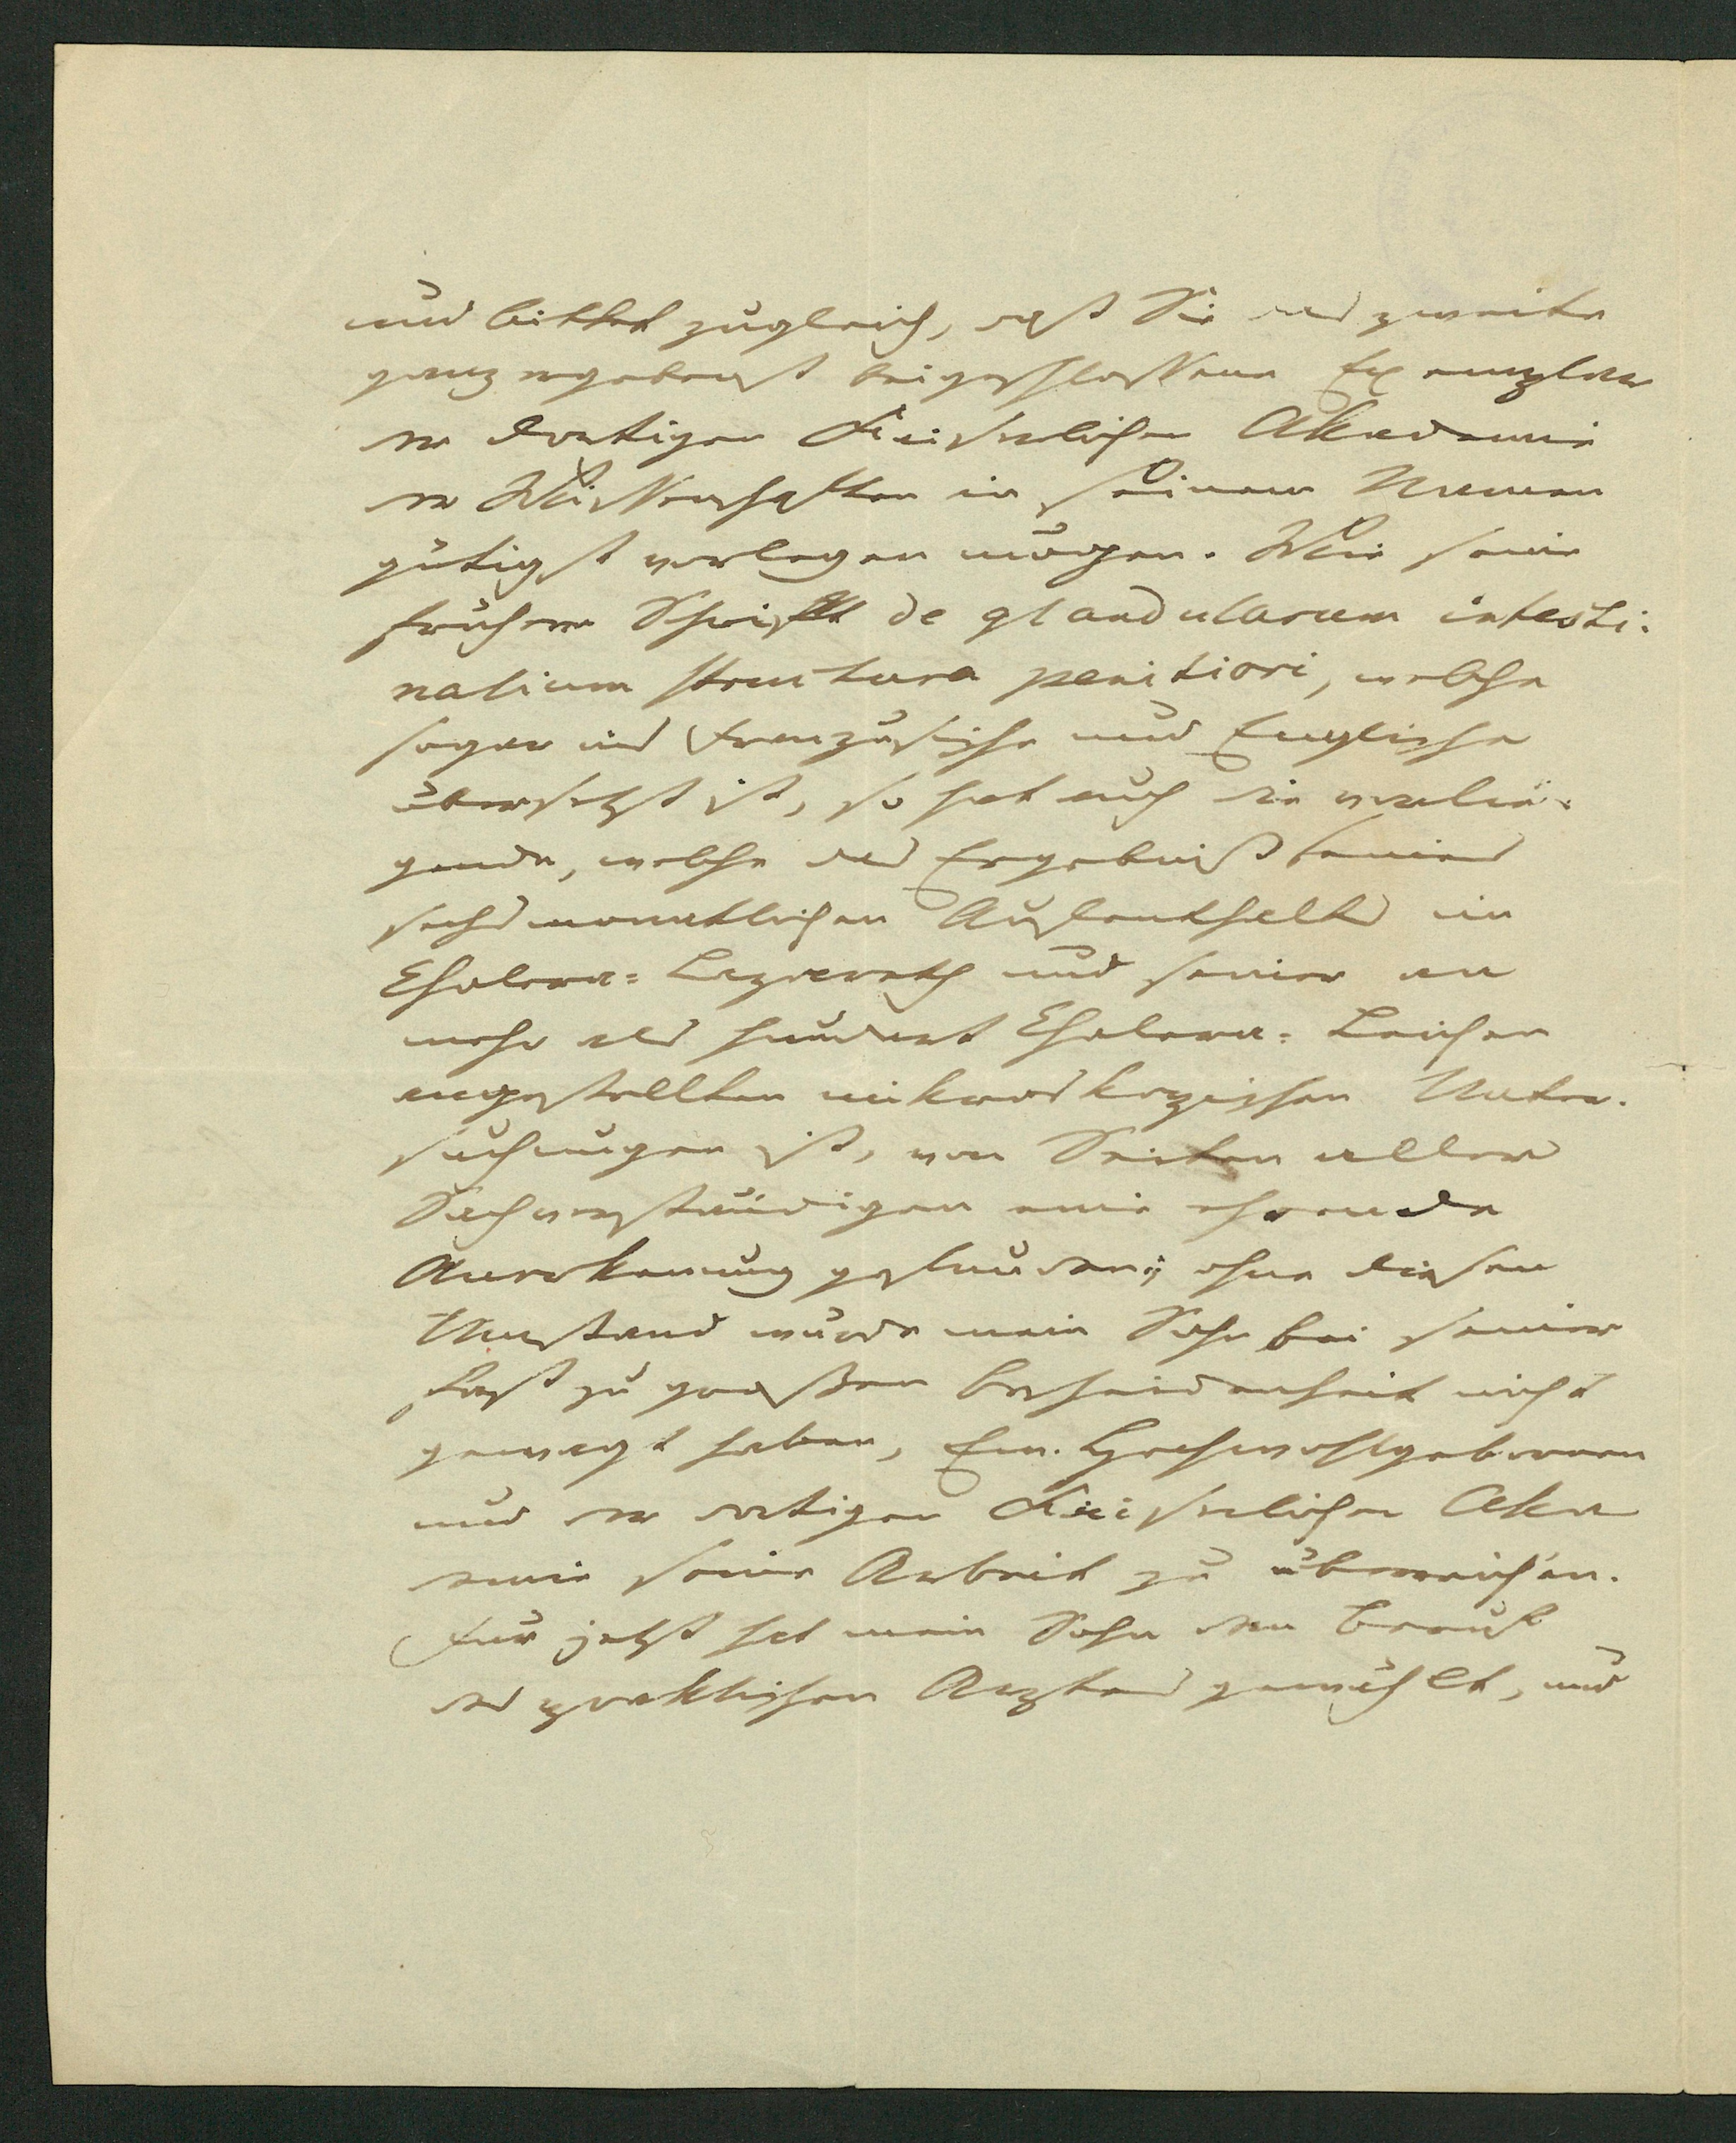 und bittet zugleich, daß Sie das zweite
ganz ergebenst beigeschlossene Exemplar
der dortigen Kaiserlichen Akademie
der Wissenschaften in seinem Namen
gütigst vorlegen mögen. Wie seine
frühere Schrift de glandularum intesti-
nalium structura penitiori, welche
sogar ins Französische und Englische
übersetzt ist, so hat auch die vorlie-
gende, welche das Ergebniß seines
sechsmonatlichen Aufenthalts im
Cholera-Lazareth und seiner an
mehr als hundert Cholera-Leichen
angestellten mikroskopischen Unter-
suchungen ist, von Seiten aller
Sachverständigen eine ehrende
Anerkennung gefunden; ohne diesen
Umstand würde mein Sohn bei seiner
fast zu großen Bescheidenheit nicht
gewagt haben, Ew. Hochwohlgeboren
und der dortigen Kaiserlichen Aka
demie seine Arbeit zu überreichen.
Für jetzt hat mein Sohn den Beruf
des praktischen Arztes gewählt, und